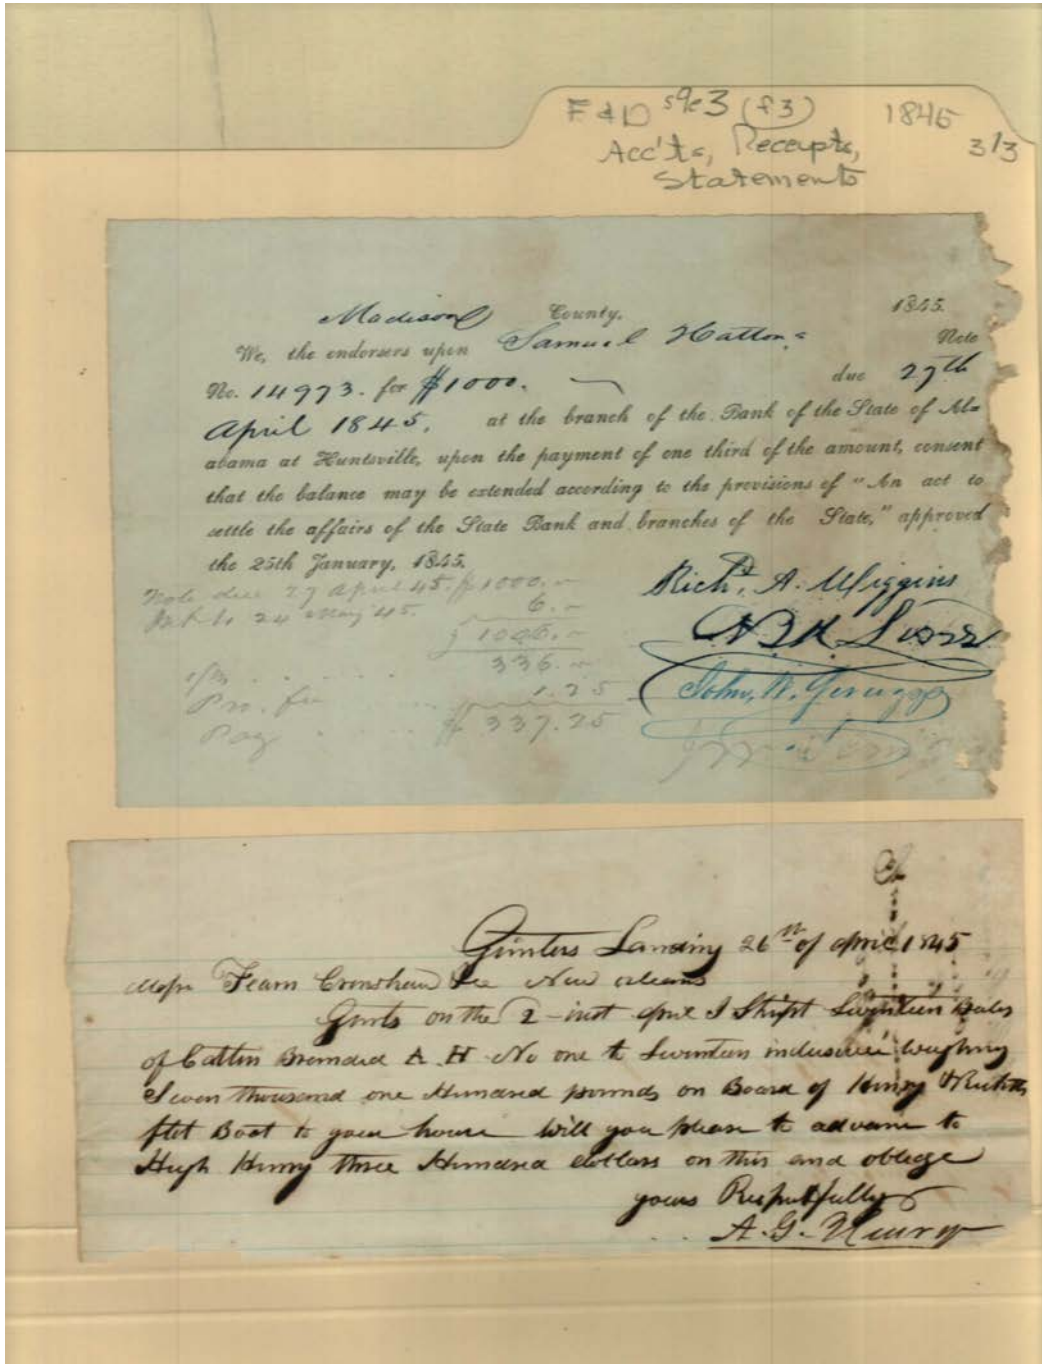 F & D s9e3 (f3) 1845
Acc'ts, Receipts, 3/3
Statements
Madison County, 1845.
We, the endorsers upon Samuel Hatton's Note
No. 14973. for $1000. due 27th
April 1845, at the branch of the Bank of the State of Al-
abama at Huntsville, upon the payment of one third of the amount, consent
that the balance may be extended according to the provisions of "An act to
settle the affairs of the State Bank and branches of the State," approved
the 25th January, 1845.
Note due 27 April 45. $1000.
24 May 45. 6.
1006.
1/3 336.
Pro. fee 1.25
Pay $ 337.25
Richd. A. Wiggins
John W.
Gunters Landing 26th of April 1845
Messrs Fearn Crenshaw New orleans
Gents on the 2 inst I Shipt Seventeen Bales
of Cotton Branded A. H No one to Seventeen inclusive weighing
Seven thousand one Hundred pounds on Board of Henry &
flat Boat to your house will you please to advance to
Hugh Henry three Hundred dollars on this and oblege
yours Respectfully
A. G. Henry